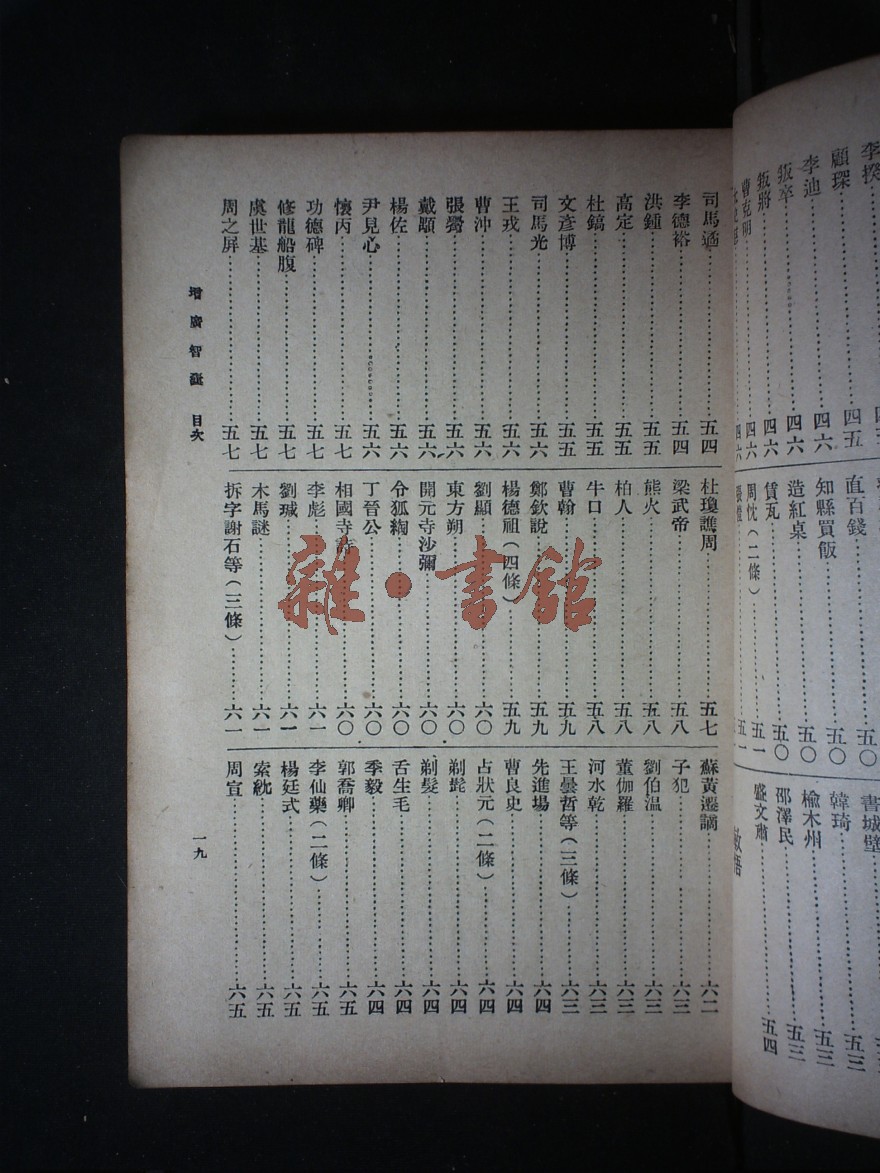 李揆
顧琛……四五
李迪……四六
叛卒……四六
叛將……四六
曹克明……四六
直百錢……五〇
知縣買飯……五〇
造紅桌……五〇
賃瓦……五〇
周忱（二條）……五一
書城壁……五三
韓琦……五三
楡木州……五三
邵澤民……五三
盛文肅……五四
敏悟
司馬遹……五四
李德裕……五四
洪鍾……五五
高定……五五
杜鎬……五五
文彥博……五五
司馬光……五六
王戎……五六
曹沖……五六
張㽦……五六
戴顒……五六
楊佐……五六
尹見心……五六
懷丙……五七
功德碑……五七
修龍船腹……五七
虞世基……五七
周之屏……五七
杜瓊譙周……五七
梁武帝……五八
熊火……五八
柏人……五八
牛口……五八
曹翰……五九
鄭欽說……五九
楊德祖（四條）……五九
劉顯……六〇
東方朔……六〇
開元寺沙彌……六〇
令狐綯……六〇
丁晉公……六〇
相國寺詩……六〇
李彪……六一
劉瑊……六一
木馬謎……六一
拆字謝石等（三條）……六一
蘇黃遷謫……六二
子犯……六三
劉伯溫……六三
董伽羅……六三
河水乾……六三
王曇哲等（三條）……六三
先進場……六四
曹良史……六四
占狀元（二條）……六四
剃髭……六四
剃髮……六四
舌生毛……六四
季毅……六四
郭喬卿……六五
李仙藥（二條）……六五
楊廷式……六五
索紞……六五
周宣……六五
增廣智囊 目次
一九
雜·書館